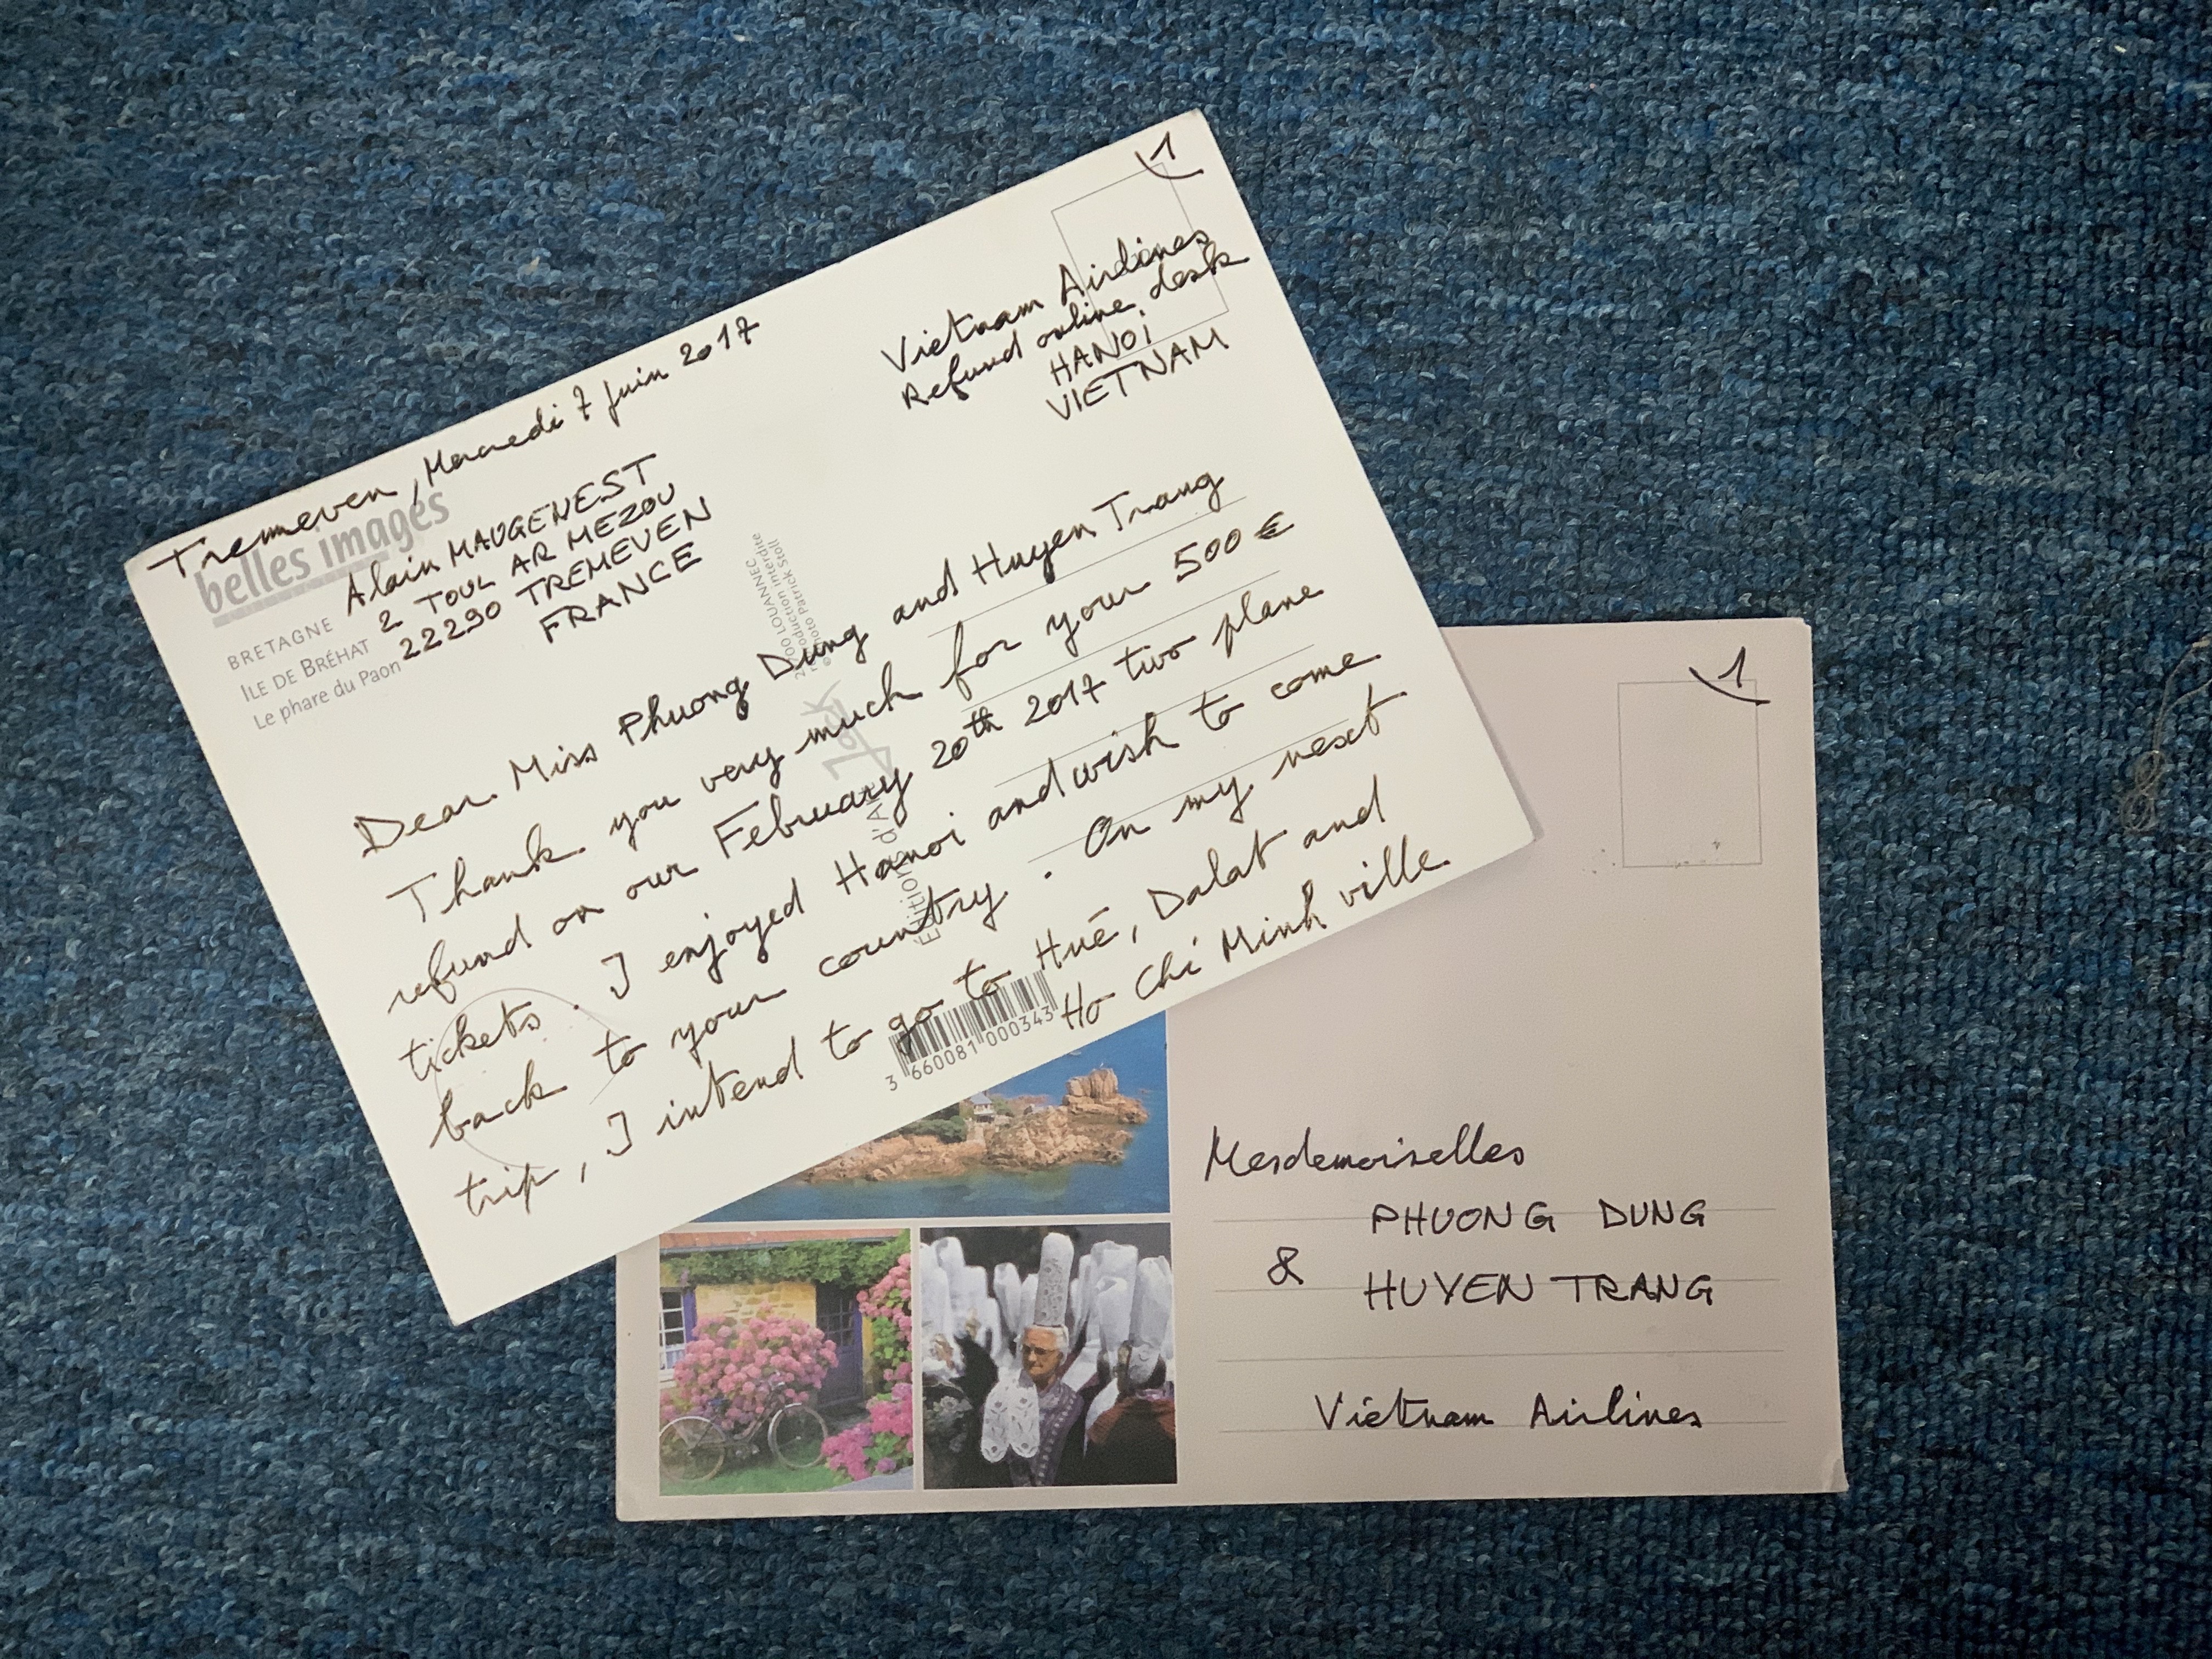 1
Tremeven, Mercredi 7 juin 2017
belles images
Alain MAUGENEST
2 TOUL AR MEZOU
22290 TREMEVEN
FRANCE
BRETAGNE
ILE DE BRÉHAT
Le phare du Paon
Vietnam Airlines
Refund online desk
HANOi
VIETNAM
LOUANNEC
interdite
Patrick Stoll
Jack
Dear Miss Phuong Dung and Huyen Trang
Thank you very much for your 500 €
refund on our February 20th 2017 two plane
tickets. I enjoyed Hanoi and wish to come
back to your country. On my next
trip, I intend to go to Hué, Dalat and
Ho Chi Minh ville
3 660081 000343
1
Mesdemoiselles
PHUONG DUNG
& HUYEN TRANG
Vietnam Airlines